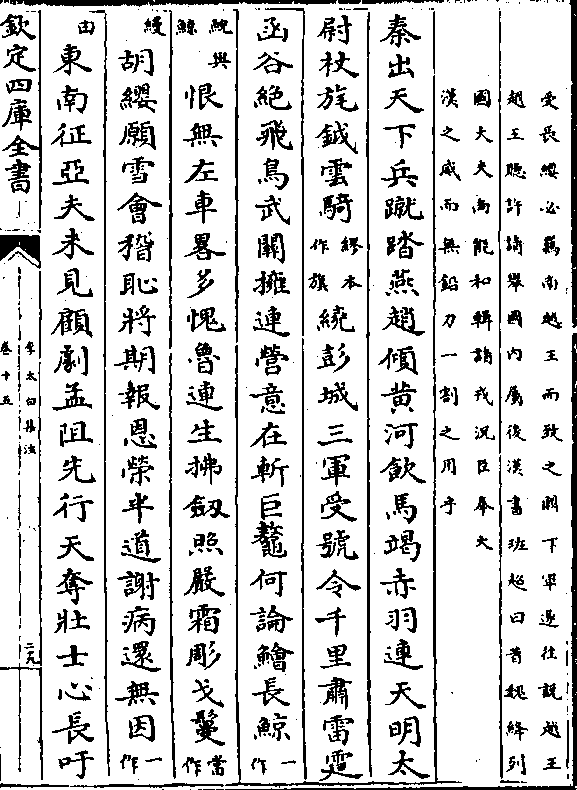 受長纓必羈南越王而致之闕下軍遂往說越王
越王聽許請舉國內屬後漢書班超曰昔魏絳列
國大夫尚能和輯諸戎況臣奉大
漢之威而無鉛刀一割之用乎
秦出天下兵蹴踏燕趙傾黃河飲馬竭赤羽連天明太
尉杖旄鉞雲騎繆本作旗繞彭城三軍受號令千里肅雷霆
函谷絕飛鳥武關擁連營意在斬巨鼇何論鱠長鯨一作
鯢與鯨恨無左車畧多愧魯連生拂劒照嚴霜彫戈鬘當作
縵胡纓願雪會稽恥將期報恩榮半道謝病還無因一作
由東南征亞夫未見顧劇孟阻先行天奪壯士心長吁
欽定四庫全書
李太白集注
卷十五
二九